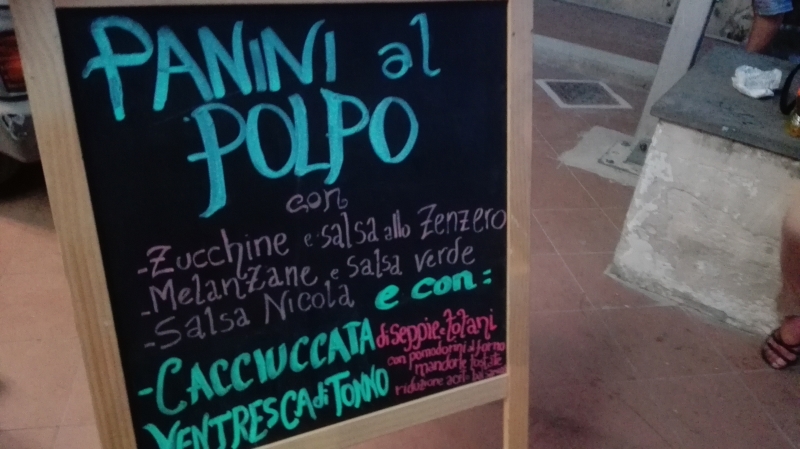 PANINI al
POLPO
con
-Zucchine e salsa allo Zenzero
-Melanzane e salsa verde
-Salsa Nicola e con:
-CACCIUCCATA di Seppie e totani
VENTRESCA di TONNO con pomodorini al forno
mandorle tostate
riduzione aceto balsamico